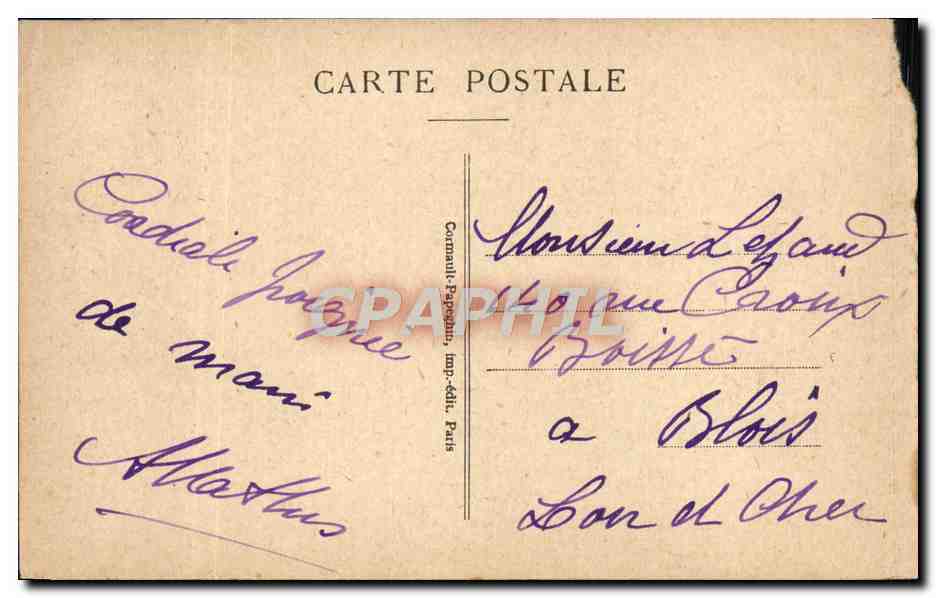 CARTE POSTALE
Cordiale poignée
de main
AMathus
Cormault-Papeghin, imp.-édit. Paris
Monsieur Lezaud
40 rue Croix
Boissé
a Blois
Loir et Cher
CPAPHIL